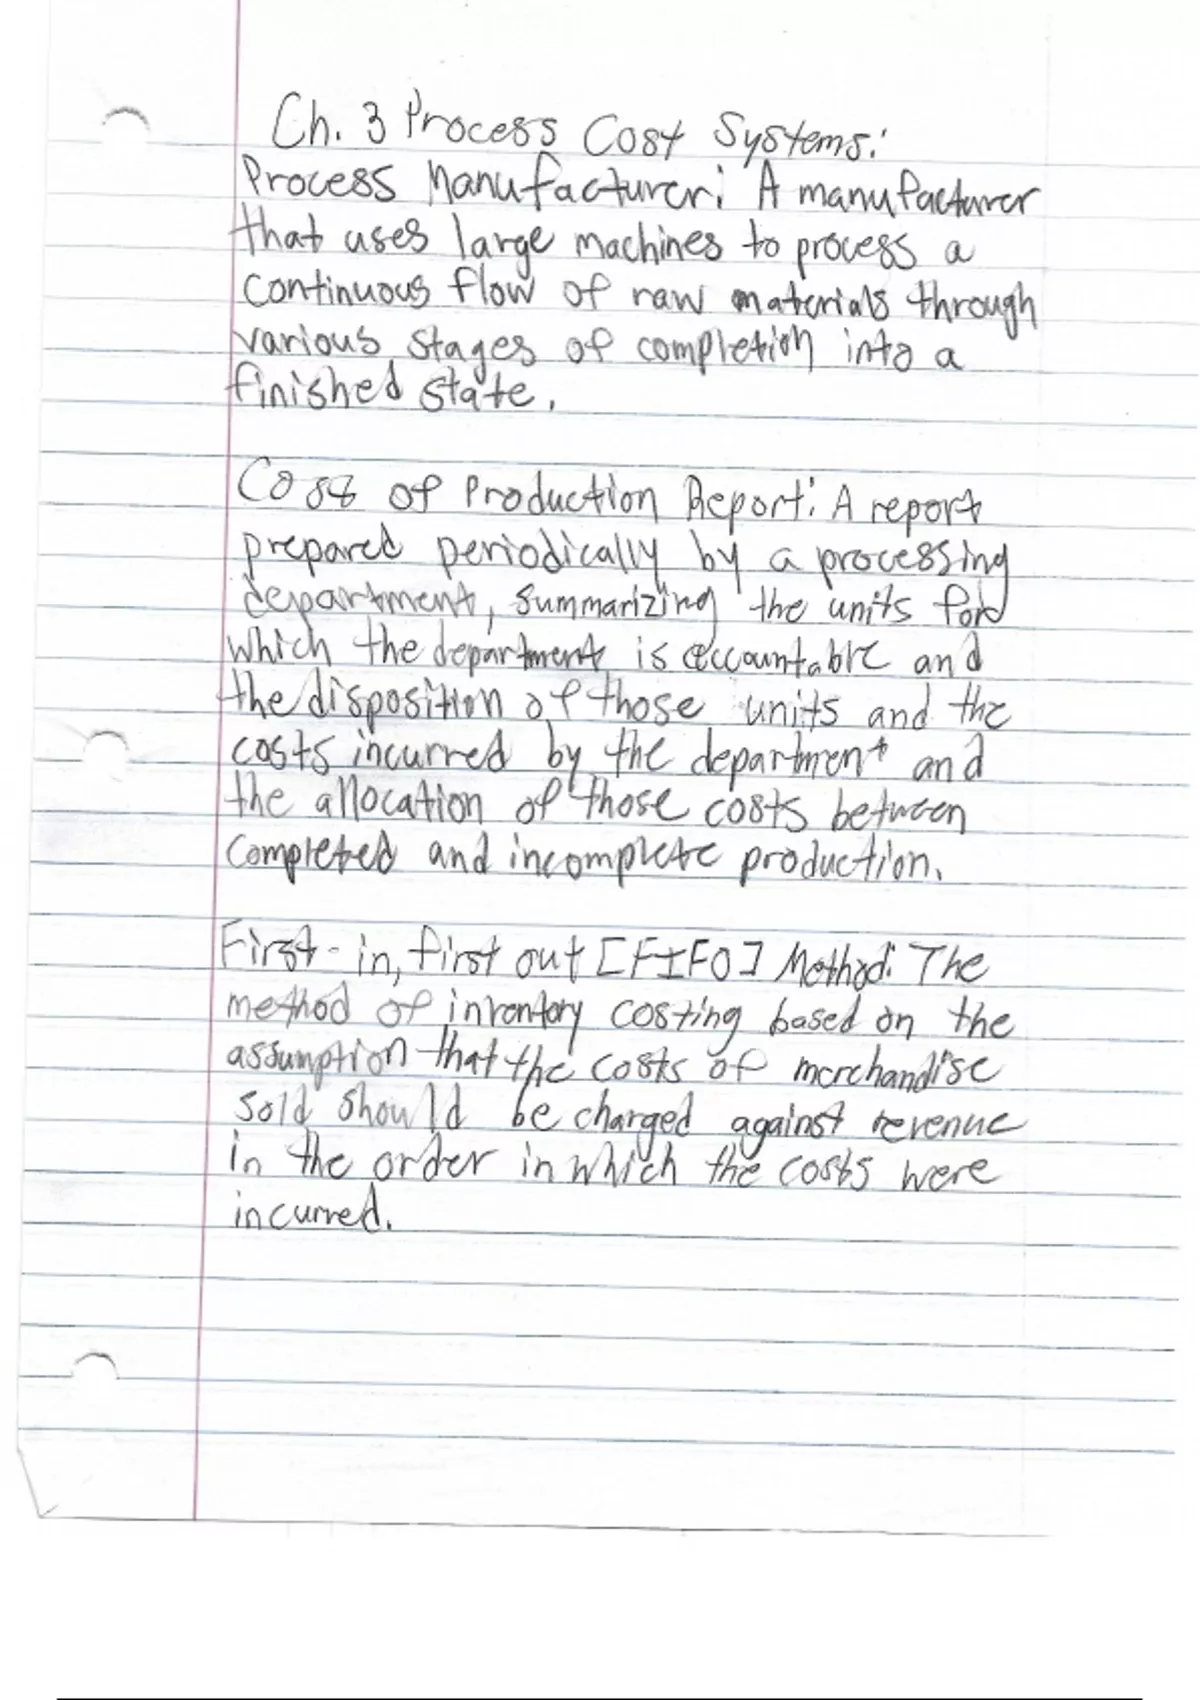 Ch. 3 Process Cost Systems:
Process Manufacturer: A manufacturer
that uses large machines to process a
continuous flow of raw materials through
various stages of completion into a
finished state.
Cost of Production Report: A report
prepared periodically by a processing
department, summarizing the units for
which the department is accountable and
the disposition of those units and the
costs incurred by the department and
the allocation of those costs between
completed and incomplete production.
First-in, first out [FIFO] Method: The
method of inventory costing based on the
assumption that the costs of merchandise
sold should be charged against revenue
in the order in which the costs were
incurred.